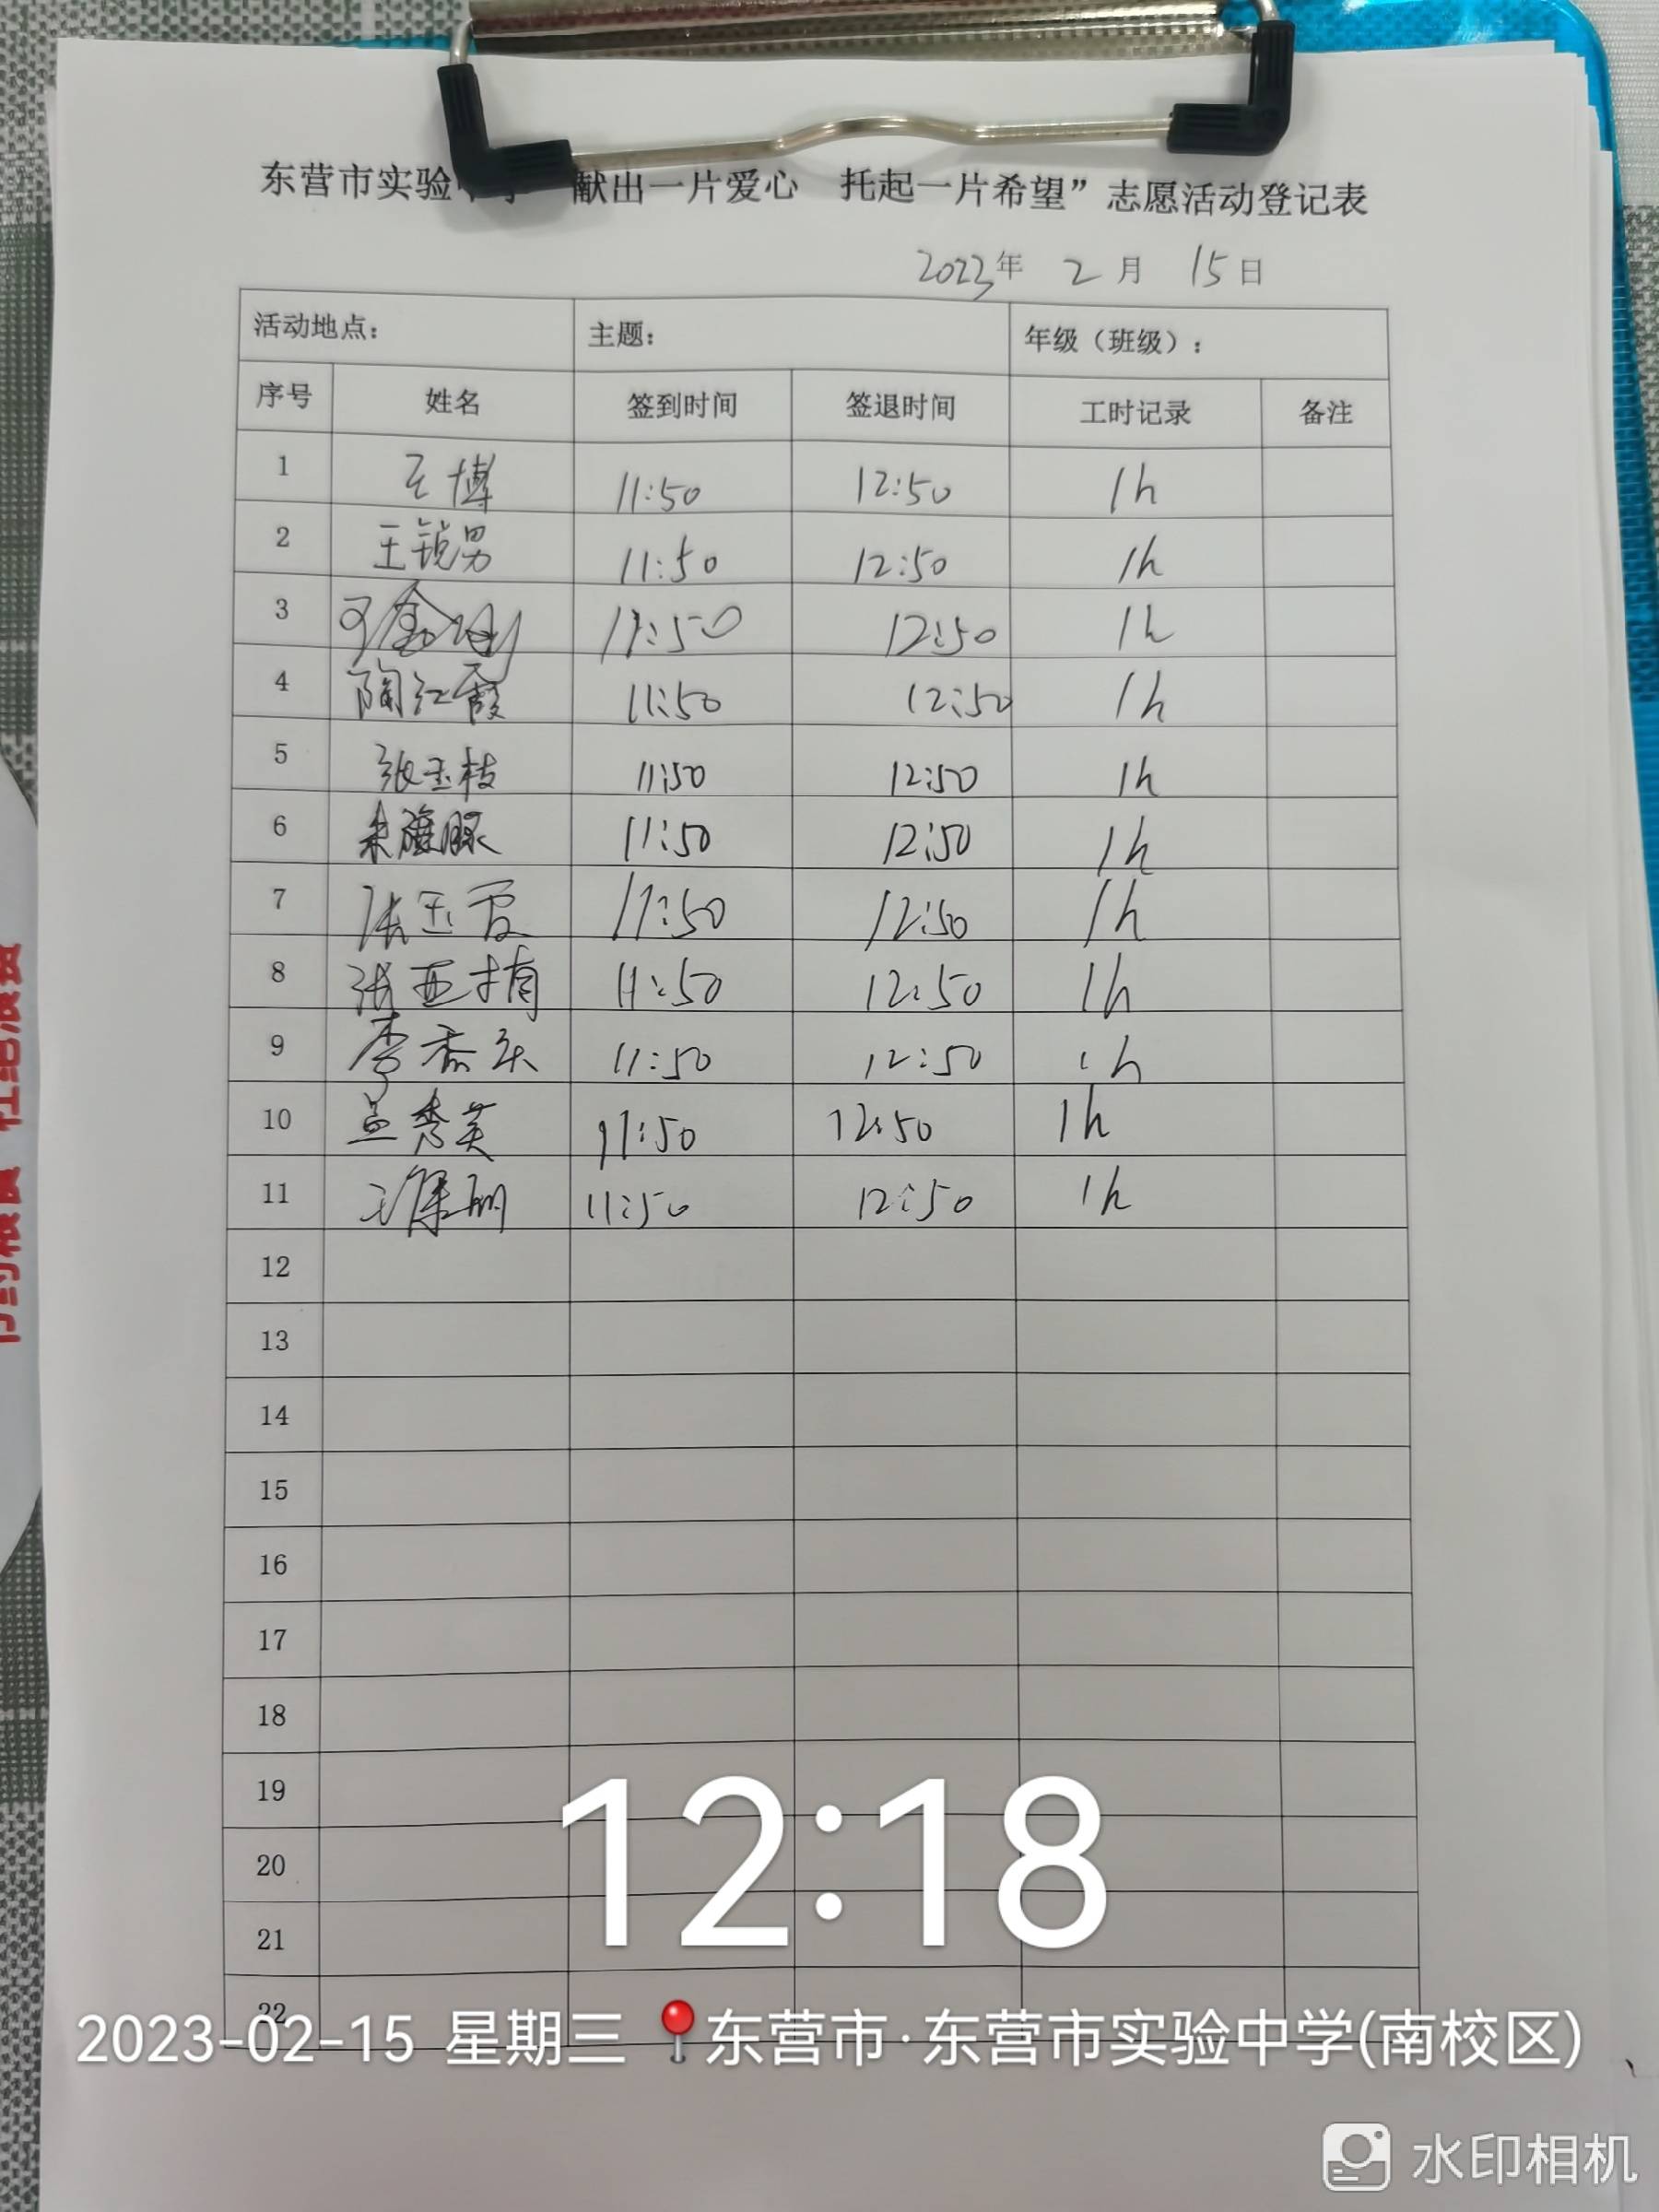 东营市实验中学 献出一片爱心 托起一片希望”志愿活动登记表
2023年 2月 15日
活动地点： 主题： 年级（班级）：
序号 姓名 签到时间 签退时间 工时记录 备注
1 王博 11:50 12:50 1h
2 王锐男 11:50 12:50 1h
3 11:50 12:50 1h
4 陶红霞 11:50 12:50 1h
5 张玉枝 11:50 12:50 1h
6 11:50 12:50 1h
7 张玉霞 11:50 12:50 1h
8 张亚楠 11:50 12:50 1h
9 李香 11:50 12:50 1h
10 孟秀英 11:50 12:50 1h
11 11:50 12:50 1h
12
13
14
15
16
17
18
19
20
21
22
12:18
2023-02-15 星期三 东营市·东营市实验中学(南校区)
水印相机